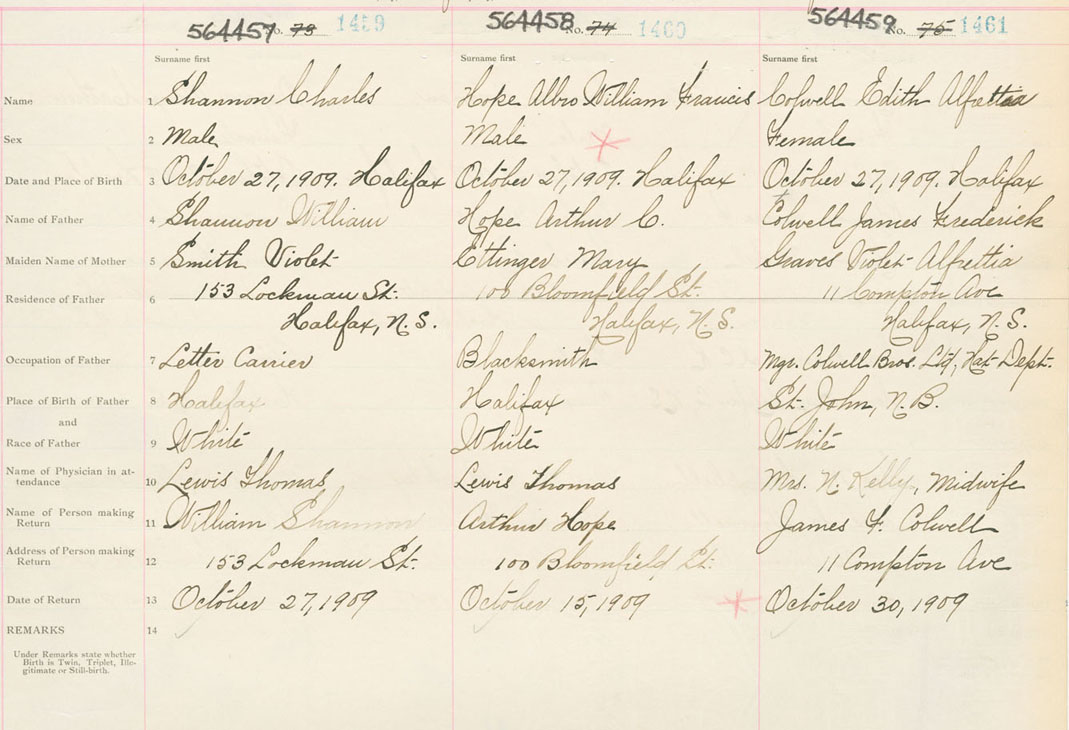 564457 No. 73 1459
564458 No. 74 1460
564459 No. 75 1461
Surname first Surname first Surname first
Name 1 Shannon Charles Hope Albro William Francis Colwell Edith Alfrettia
Sex 2 Male Male Female
Date and Place of Birth 3 October 27, 1909. Halifax October 27, 1909. Halifax October 27, 1909. Halifax
Name of Father 4 Shannon William Hope Arthur C. Colwell James Frederick
Maiden Name of Mother 5 Smith Violet Ettinger Mary Graves Violet Alfrettia
Residence of Father 6 153 Lockman St. 100 Bloomfield St. 11 Compton Ave
Halifax, N.S. Halifax, N.S. Halifax, N.S.
Occupation of Father 7 Letter Carrier Blacksmith Mgr. Colwell Bros. Ltd, Hat Dept.
Place of Birth of Father 8 Halifax Halifax St. John, N.B.
and
Race of Father 9 White White White
Name of Physician in at-
tendance 10 Lewis Thomas Lewis Thomas Mrs. N. Kelly, Midwife
Name of Person making
Return 11 William Shannon Arthur Hope James F. Colwell
Address of Person making
Return 12 153 Lockman St. 100 Bloomfield St. 11 Compton Ave
Date of Return 13 October 27, 1909 October 15, 1909 October 30, 1909
REMARKS 14
Under Remarks state whether
Birth is Twin, Triplet, Ille-
gitimate or Still-birth.